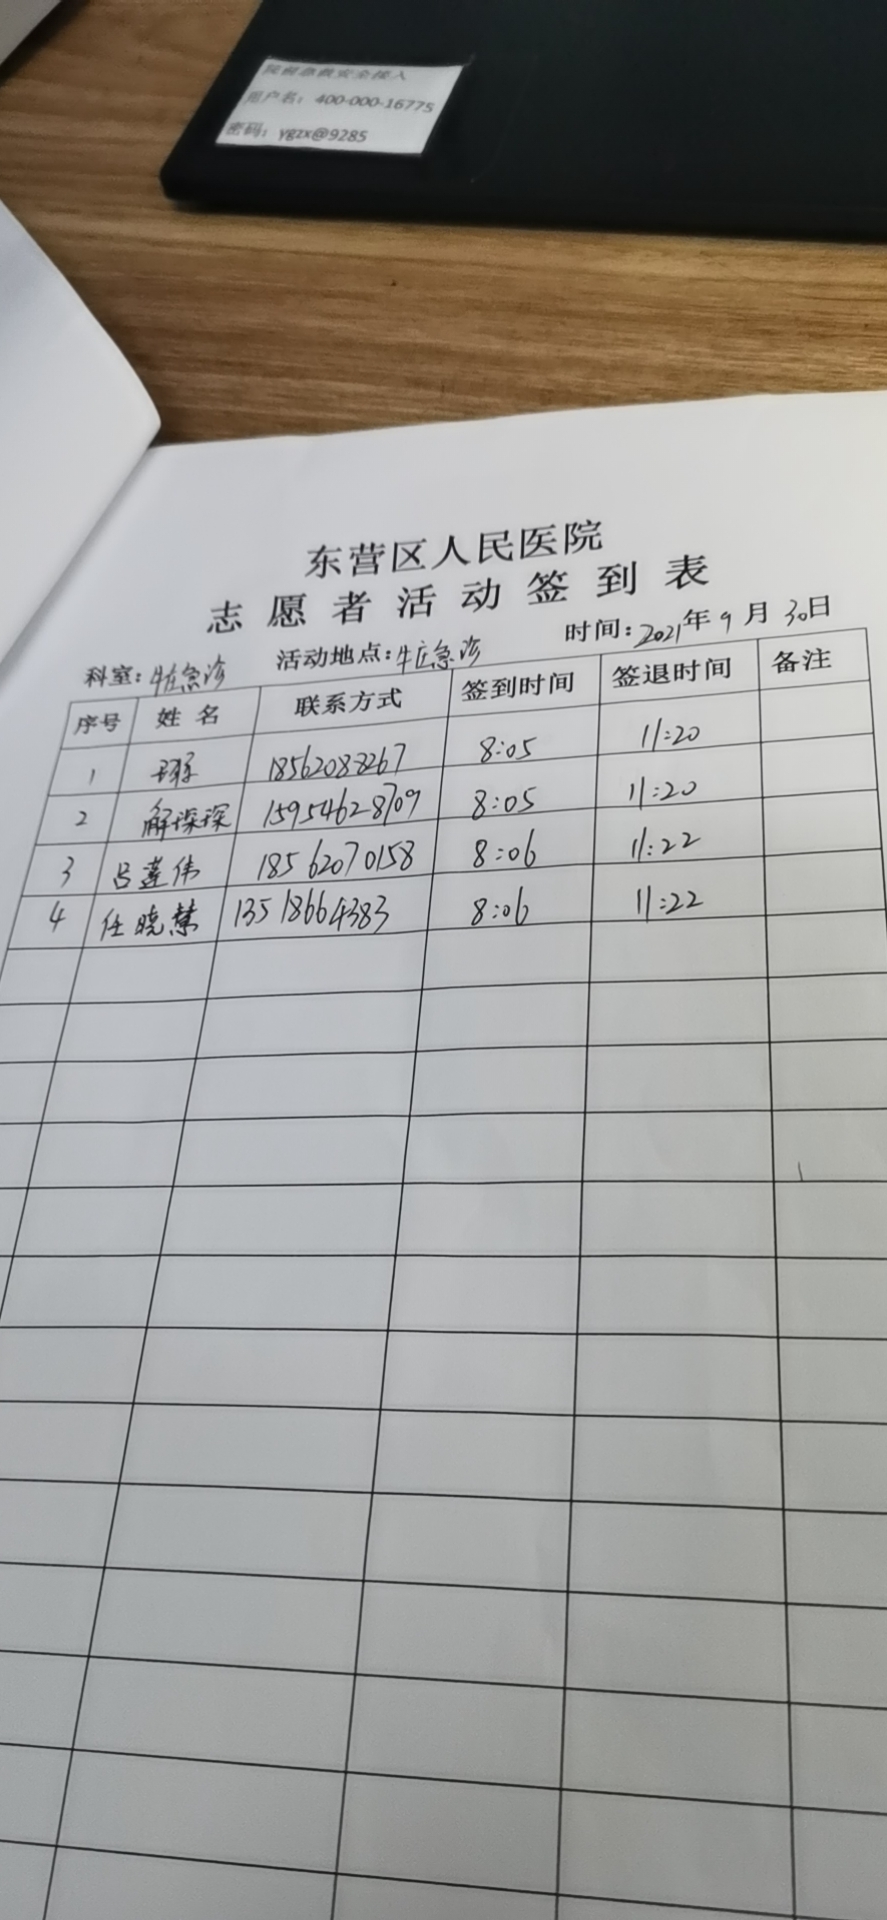 院前急救安全接入
用户名：400-000-16775
密码：ygzx@9285
东营区人民医院
志愿者活动签到表
科室：牛庄急诊 活动地点：牛庄急诊 时间：2021年9月30日
序号 姓名 联系方式 签到时间 签退时间 备注
1 18562088267 8:05 11:20
2 解琛琛 15954628709 8:05 11:20
3 吕莲伟 18562070158 8:06 11:22
4 任晓慧 13518664383 8:06 11:22